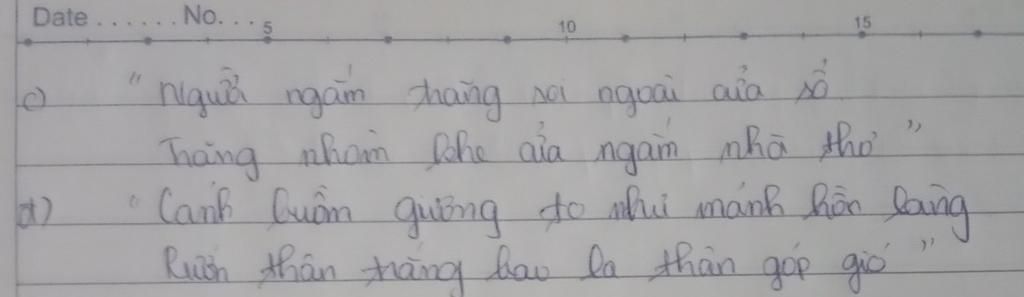 Date . . . . . . No. . . . 5 10 15
c) " Người ngắm trăng soi ngoài cửa sổ
Trăng nhòm khe cửa ngắm nhà thơ "
d) " Cánh buồm giương to như mảnh hồn làng
Rướn thân trắng bao la thâu góp gió "